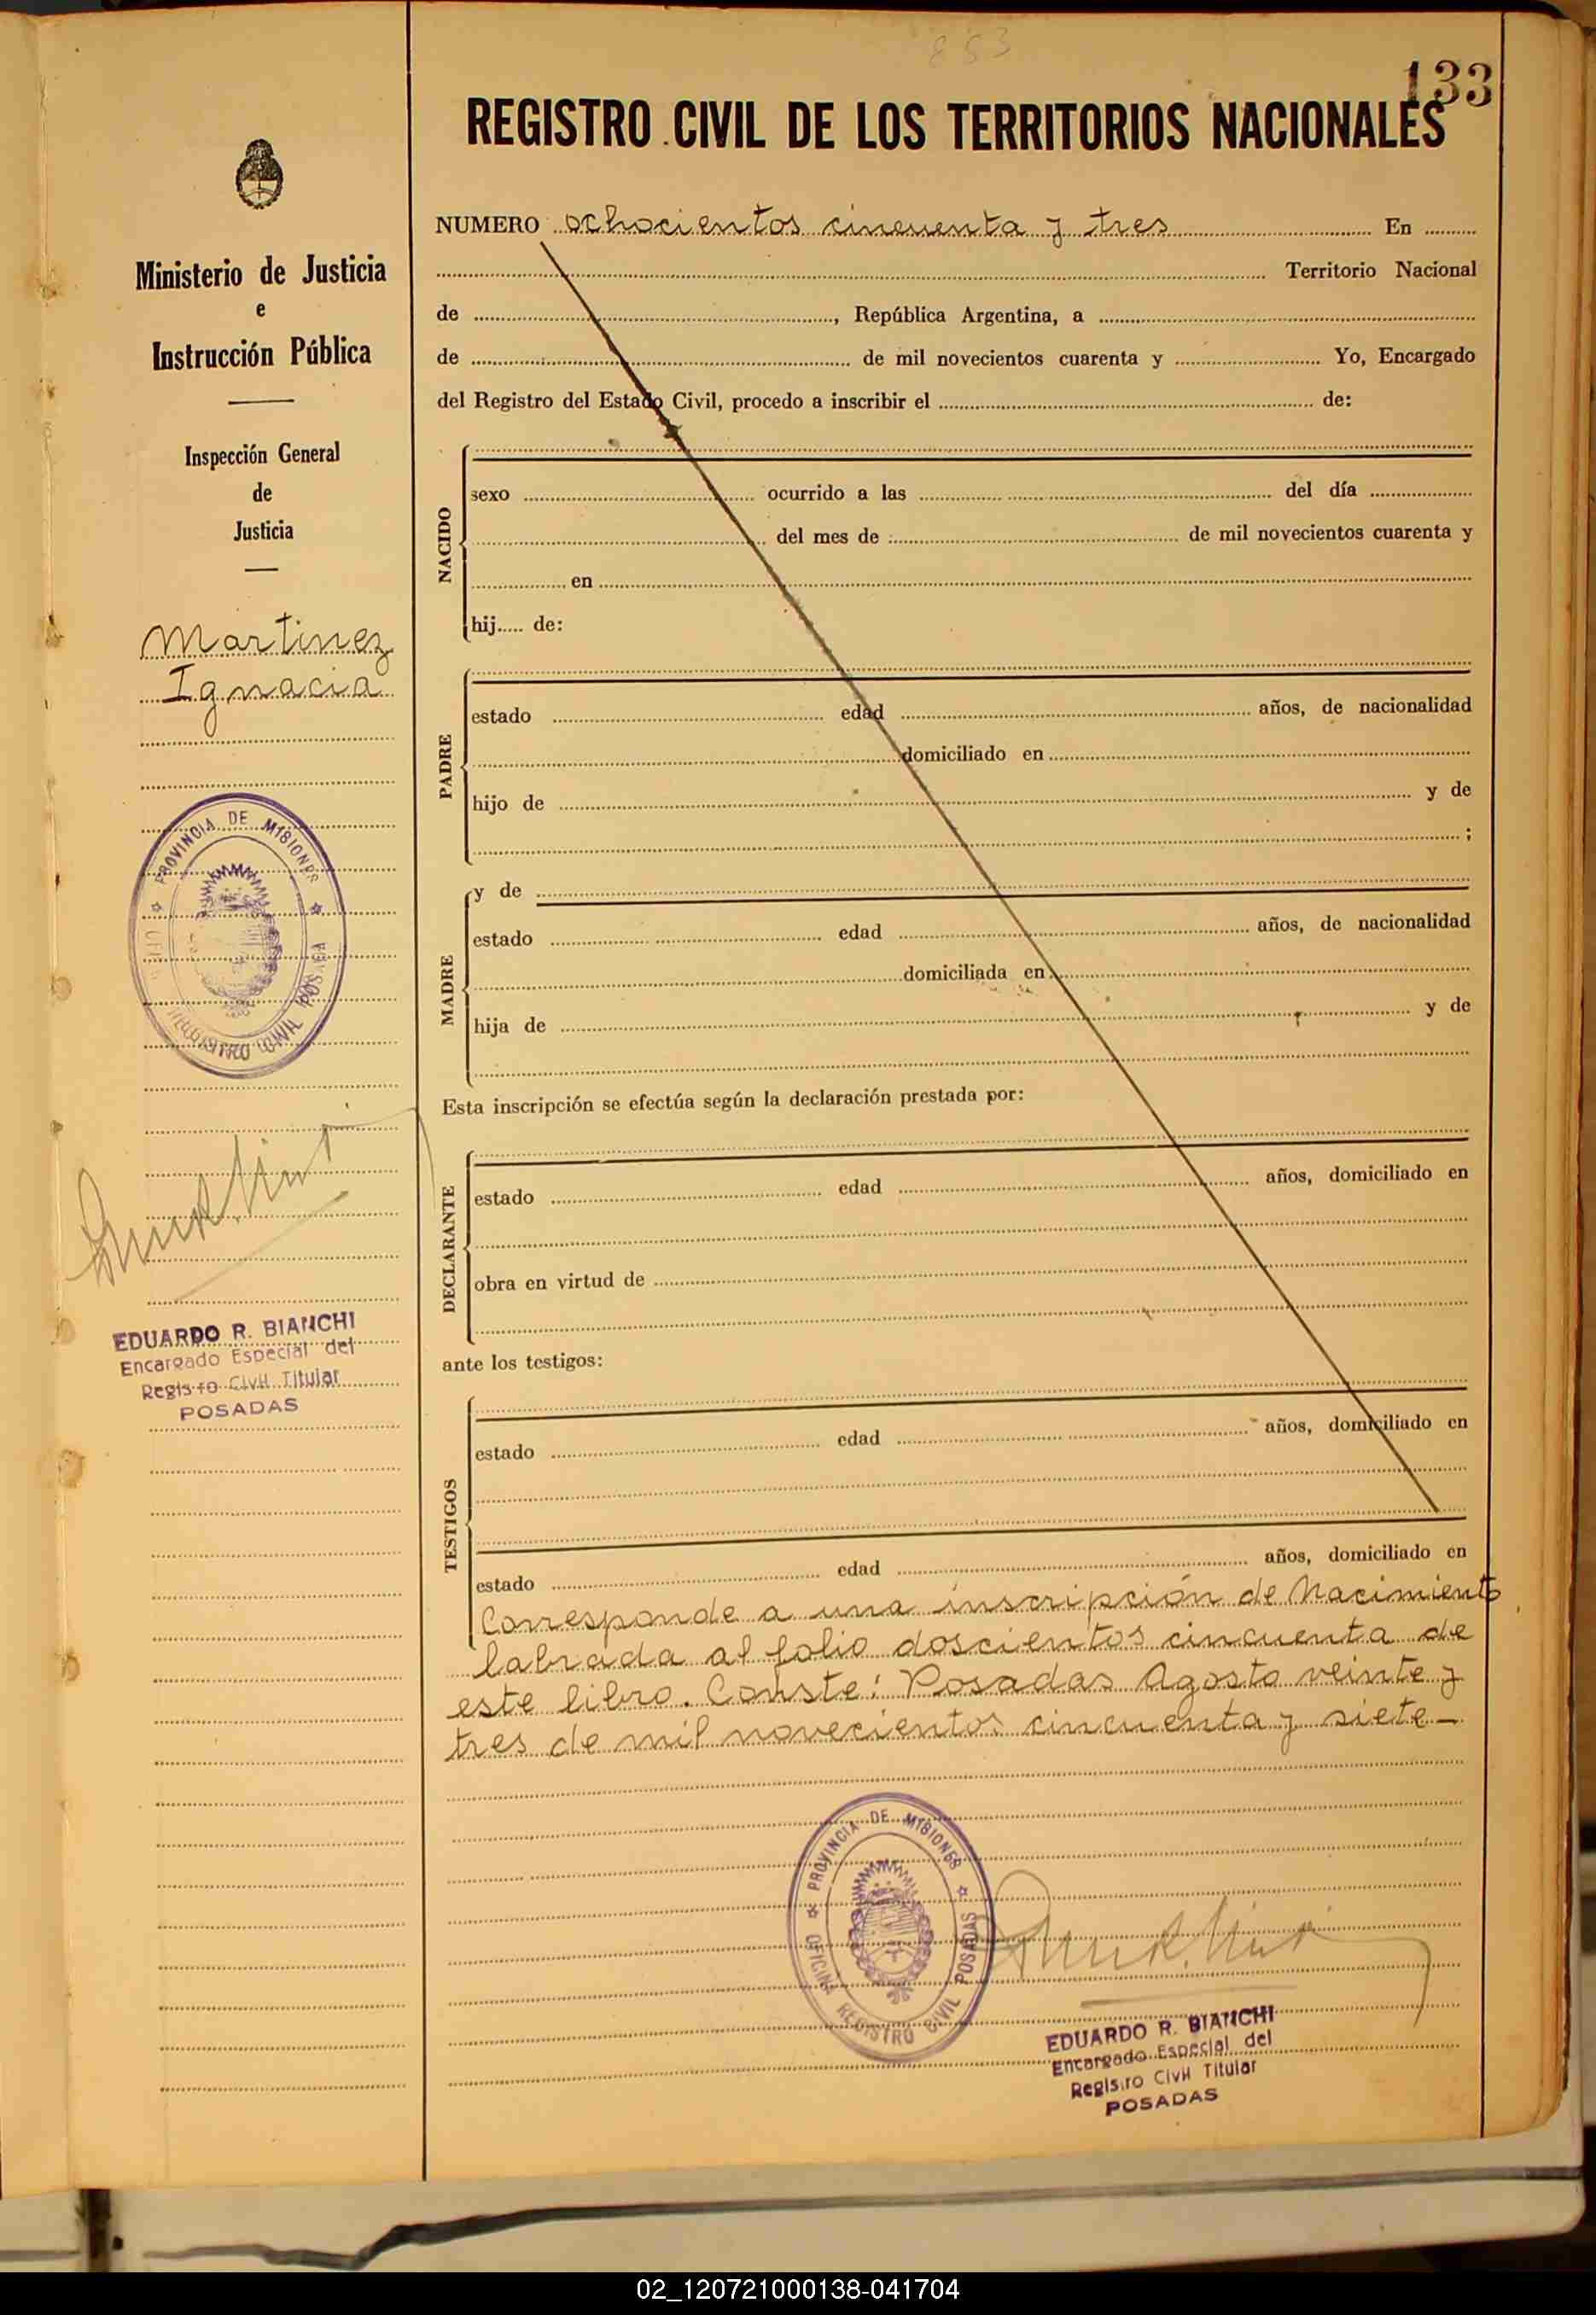 853
133
REGISTRO CIVIL DE LOS TERRITORIOS NACIONALES
Ministerio de Justicia
e
Instrucción Pública
Inspección General
de
Justicia
Martinez
Ignacia
PROVINCIA DE MISIONES
REGISTRO CIVIL POSADAS
EDUARDO R. BIANCHI
Encargado Especial del
Registro Civil Titular
POSADAS
NUMERO ochocientos cincuenta y tres En
Territorio Nacional
de , República Argentina, a
de de mil novecientos cuarenta y Yo, Encargado
del Registro del Estado Civil, procedo a inscribir el de:
NACIDO
sexo ocurrido a las del día
del mes de de mil novecientos cuarenta y
en
hij..... de:
PADRE
estado edad años, de nacionalidad
domiciliado en
hijo de y de
;
MADRE
y de
estado edad años, de nacionalidad
domiciliada en
hija de y de
Esta inscripción se efectúa según la declaración prestada por:
DECLARANTE
estado edad años, domiciliado en
obra en virtud de
ante los testigos:
TESTIGOS
estado edad años, domiciliado en
estado edad años, domiciliado en
Corresponde a una inscripción de Nacimiento
labrada al folio doscientos cincuenta de
este libro. Conste: Posadas Agosto veinte y
tres de mil novecientos cincuenta y siete—
PROVINCIA DE MISIONES
OFICINA REGISTRO CIVIL POSADAS
EDUARDO R. BIANCHI
Encargado Especial del
Registro Civil Titular
POSADAS
02_120721000138-041704